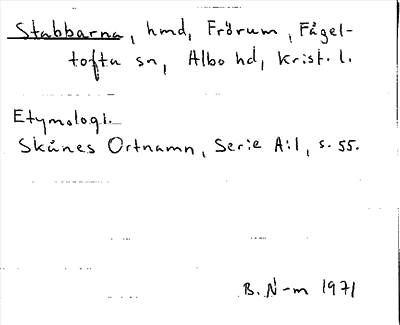 Stabbarna, hmd, Frörum, Fågel-
tofta sn, Albo hd, Krist. l.
Etymologi.
Skånes Ortnamn, Serie A:1, s. 55.
B. N-m 1971